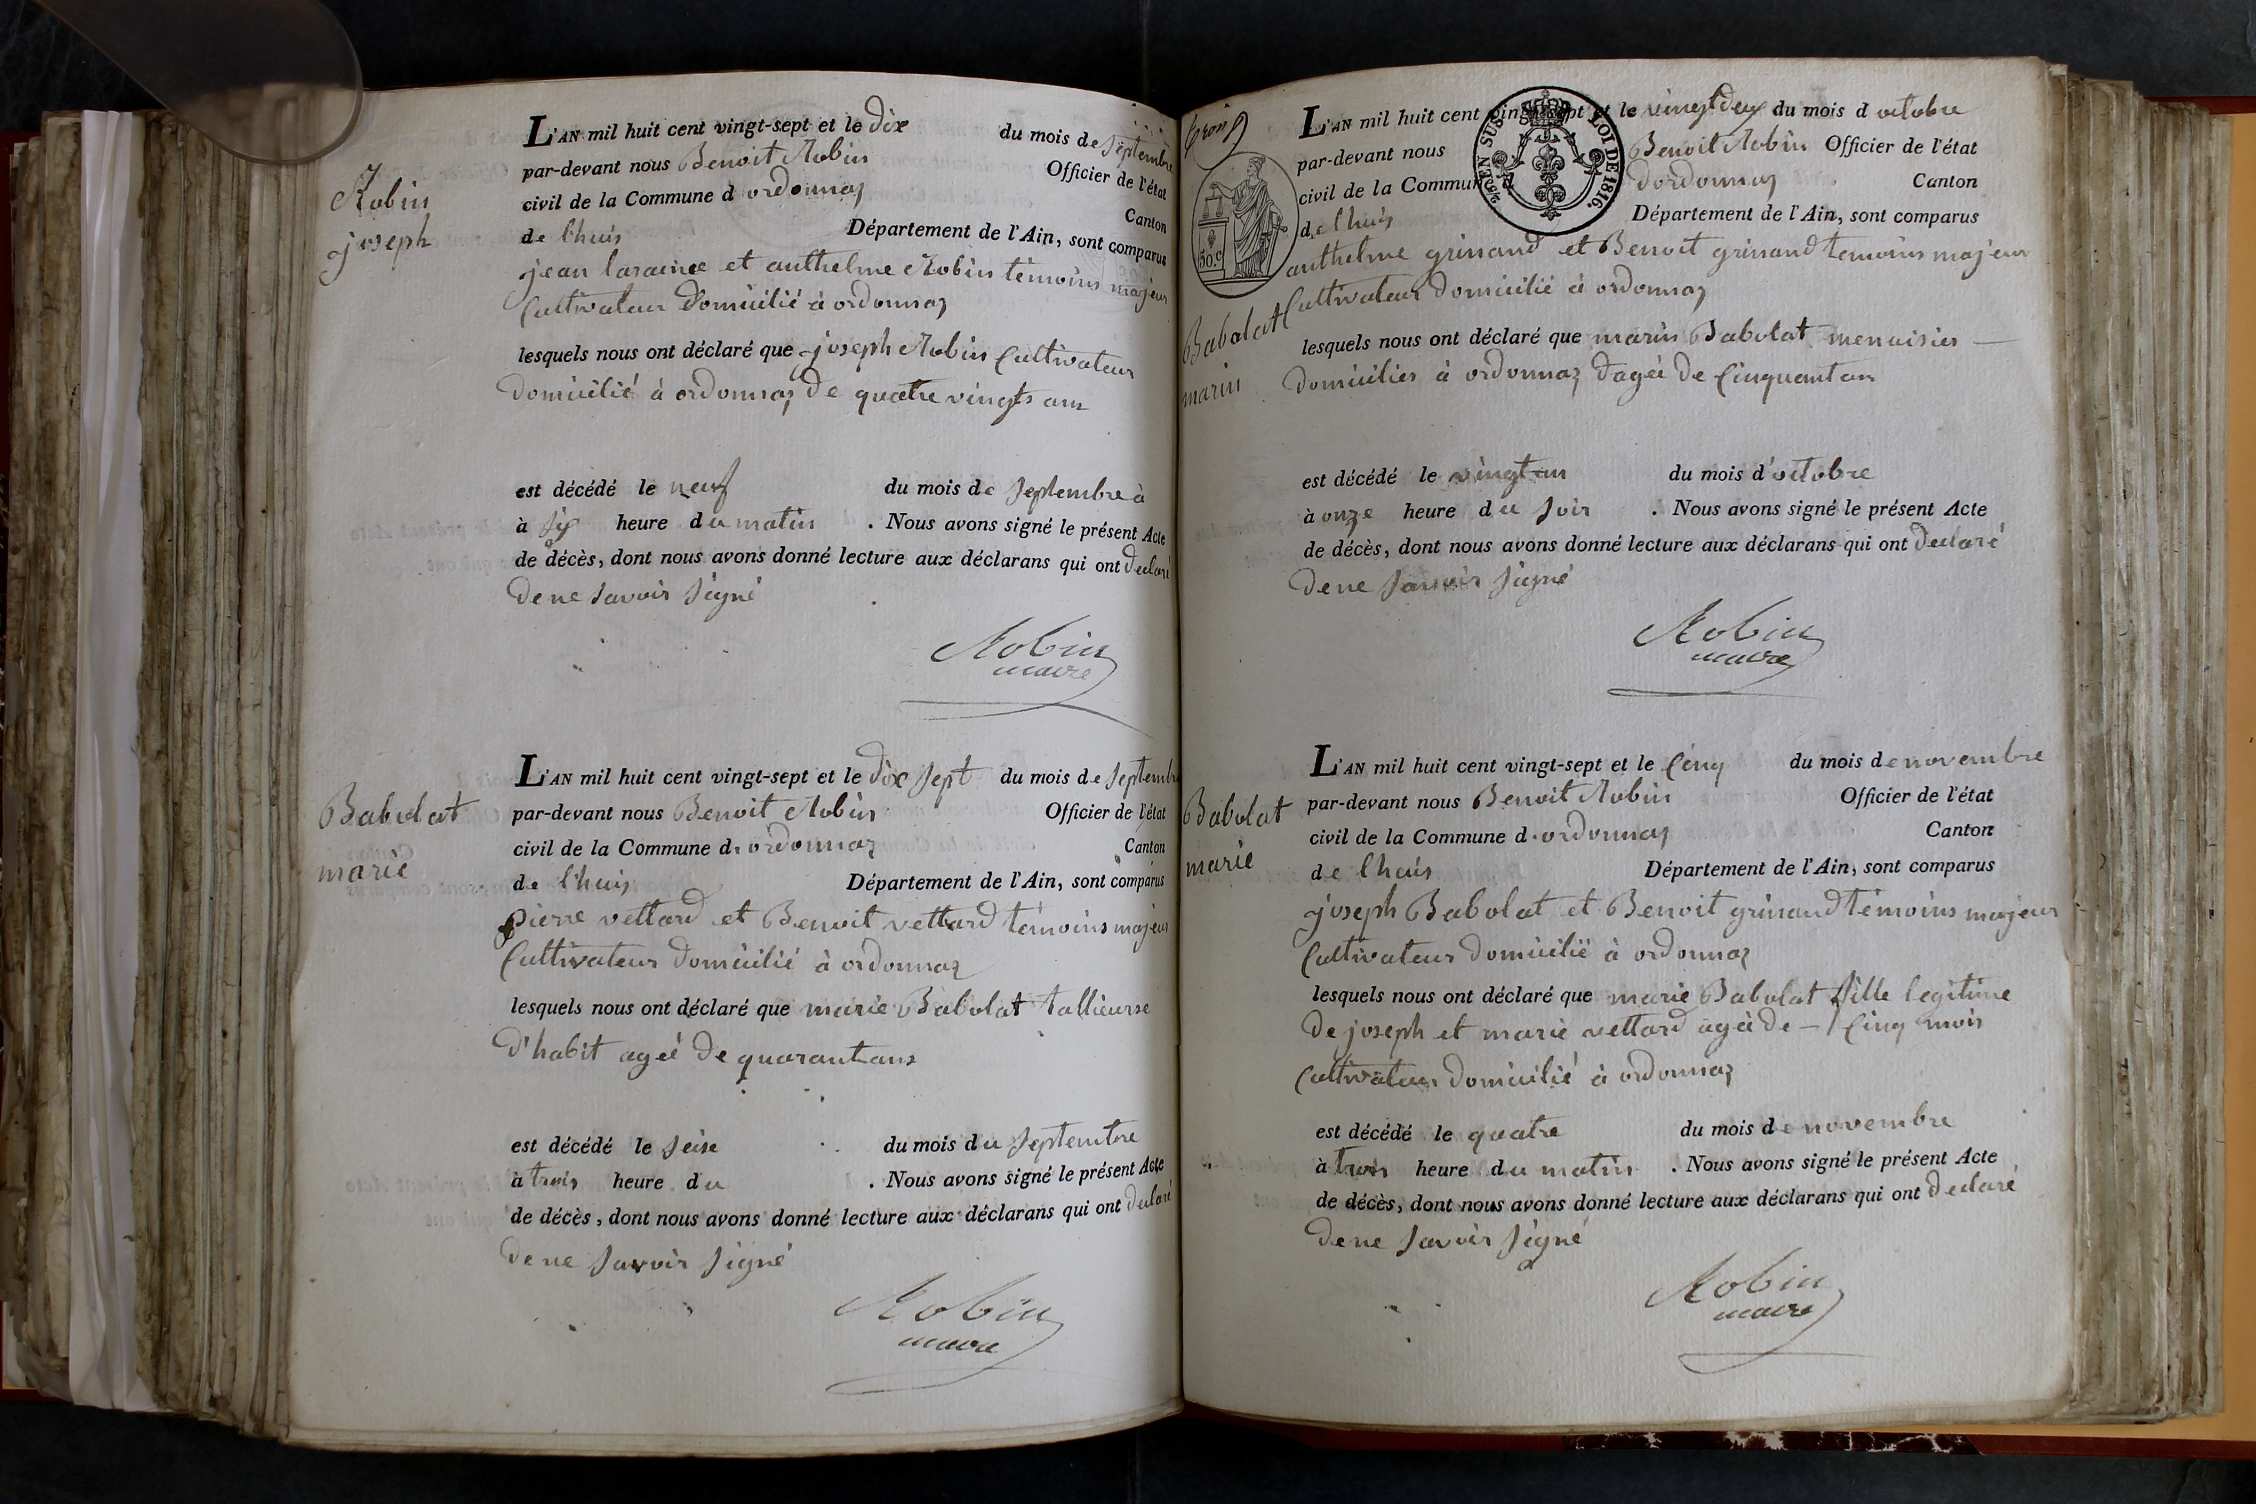 Robin
joseph
L'AN mil huit cent vingt-sept et le dix du mois de Septembre
par-devant nous Benoit Robin Officier de l'état
civil de la Commune d ordonnaz Canton
de lhuis Département de l'Ain, sont comparus
jean laracine et anthelme Robin témoins majeur
Cultivateur Domicilié à ordonnaz
lesquels nous ont déclaré que joseph Robin Cultivateur
domicilié à ordonnaz de quatre vingts ans
est décédé le neuf du mois de Septembre à
à Six heure du matin . Nous avons signé le présent Acte
de décès, dont nous avons donné lecture aux déclarans qui ont declaré
de ne Savoir Signé
Robin
maire
Babolat
marie
L'AN mil huit cent vingt-sept et le dix Sept du mois de Septembre
par-devant nous Benoit Robin Officier de l'état
civil de la Commune d. ordonnaz Canton
de lhuis Département de l'Ain, sont comparus
pierre vettard et Benoit vettard témoins majeur
Cultivateur domicilié à ordonnaz
lesquels nous ont déclaré que marie Babolat tallieurse
d'habit ageé de quarantans
est décédé le Seise du mois du Septembre
à trois heure du . Nous avons signé le présent Acte
de décès, dont nous avons donné lecture aux déclarans qui ont declaré
de ne Savoir Signé
Robin
maire
50.c
EN SUS LOI DE 1816.
Babolat
marin
L'AN mil huit cent vingt-sept et le vingtdeux du mois d octobre
par-devant nous Benoit Robin Officier de l'état
civil de la Commune d dordonnaz Canton
de lhuis Département de l'Ain, sont comparus
anthelme grinand et Benoit grinand temoins majeur
Cultivateur Domicilié à ordonnaz
lesquels nous ont déclaré que marin Babolat menuisier
domicilier à ordonnaz dageé de Cinquantan
est décédé le vingtun du mois d'octobre
à onze heure du Soir . Nous avons signé le présent Acte
de décès, dont nous avons donné lecture aux déclarans qui ont declaré
de ne Savoir Signé
Robin
maire
Babolat
marie
L'AN mil huit cent vingt-sept et le Cinq du mois de novembre
par-devant nous Benoit Robin Officier de l'état
civil de la Commune d. ordonnaz Canton
de lhuis Département de l'Ain, sont comparus
joseph Babolat et Benoit grinand témoins majeur
Cultivateur domicilié à ordonnaz
lesquels nous ont déclaré que marie Babolat fille legitime
de joseph et marie vettard ageé de – Cinq mois
Cultivateur domicilié à ordonnaz
est décédé le quatre du mois de novembre
à trois heure du matin . Nous avons signé le présent Acte
de décès, dont nous avons donné lecture aux déclarans qui ont declaré
de ne Savoir Signé
Robin
maire